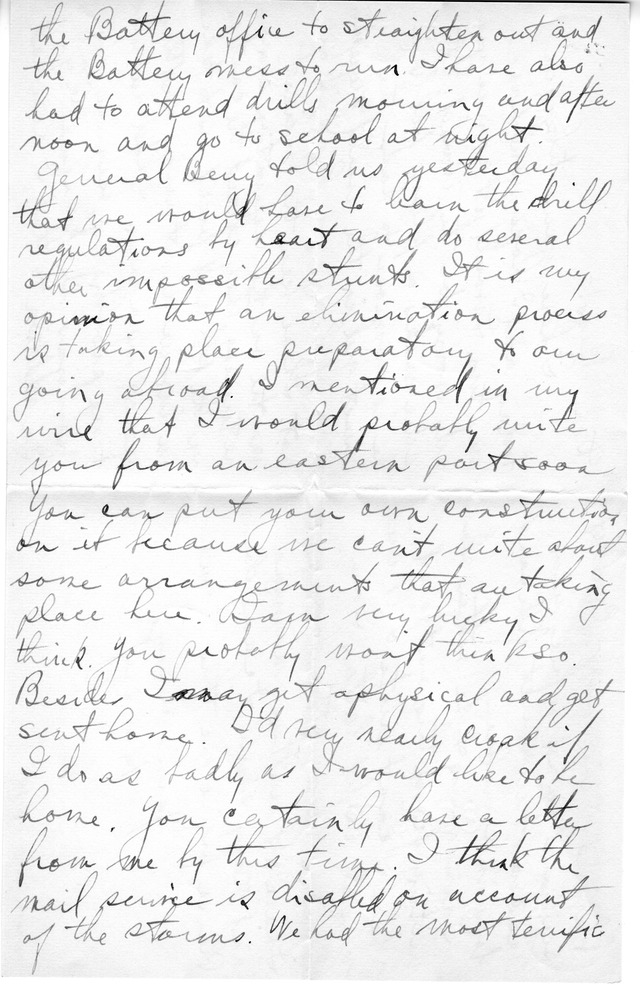 the Battery office to straighten out and
the Battery mess to run. I have also
had to attend drills morning and after
noon and go to school at night.
General Berry told us yesterday
that we would have to learn the drill
regulations by heart and do several
other impossible stunts. It is my
opinion that an elimination process
is taking place preparatory to our
going abroad. I mentioned in my
wire that I would probably write
you from an eastern port soon
You can put your own construction
on it because we can't write about
some arrangements that are taking
place here. I am very lucky I
think. You probably won't think so.
Besides I may get a physical and get
sent home. I'd very nearly croak if
I do as badly as I would like to be
home. You certainly have a letter
from me by this time. I think the
mail service is disabled on account
of the storms. We had the most terrific